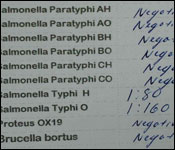 Salmonella Paratyphi AH Negati
Salmonella Paratyphi AO Negati
Salmonella Paratyphi BH Negati
Salmonella Paratyphi BO Negati
Salmonella Paratyphi CH Negati
Salmonella Paratyphi CO Negati
Salmonella Typhi H 1:80
Salmonella Typhi O 1:160
Proteus OX19 Negati
Brucella bortus Negati